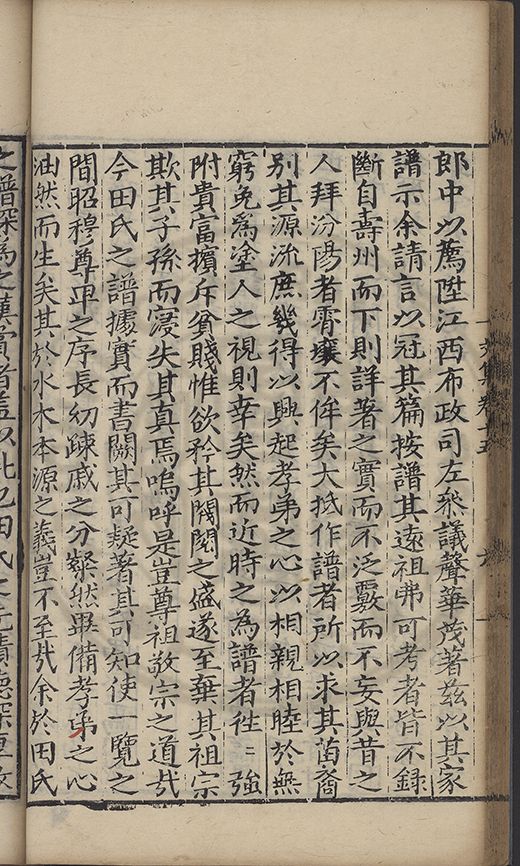 郎中以薦陞江西布政司左叅議聲華茂著玆以其家
譜示余請言以冠其篇按譜其遠祖弗可考者皆不録
斷自壽州而下則詳著之實而不泛覈而不妄與昔之
人拜汾陽者霄壤不侔矣大抵作譜者所以求其茵裔
別其源流庶幾得以興起孝弟之心以相親相睦於無
窮免為塗人之視則幸矣然而近時之為譜者徃〻強
附貴富擯斥貧賤惟欲矜其閥閱之盛遂至棄其祖宗
欺其子孫而寖失其真焉嗚呼是豈尊祖敬宗之道㢤
今田氏之譜據實而書闕其可疑著其可知使一覽之
間昭穆尊卑之序長幼踈戚之分粲然畢備孝弟之心
油然而生矣其於水木本源之義豈不至㢤余於田氏
之譜深為之